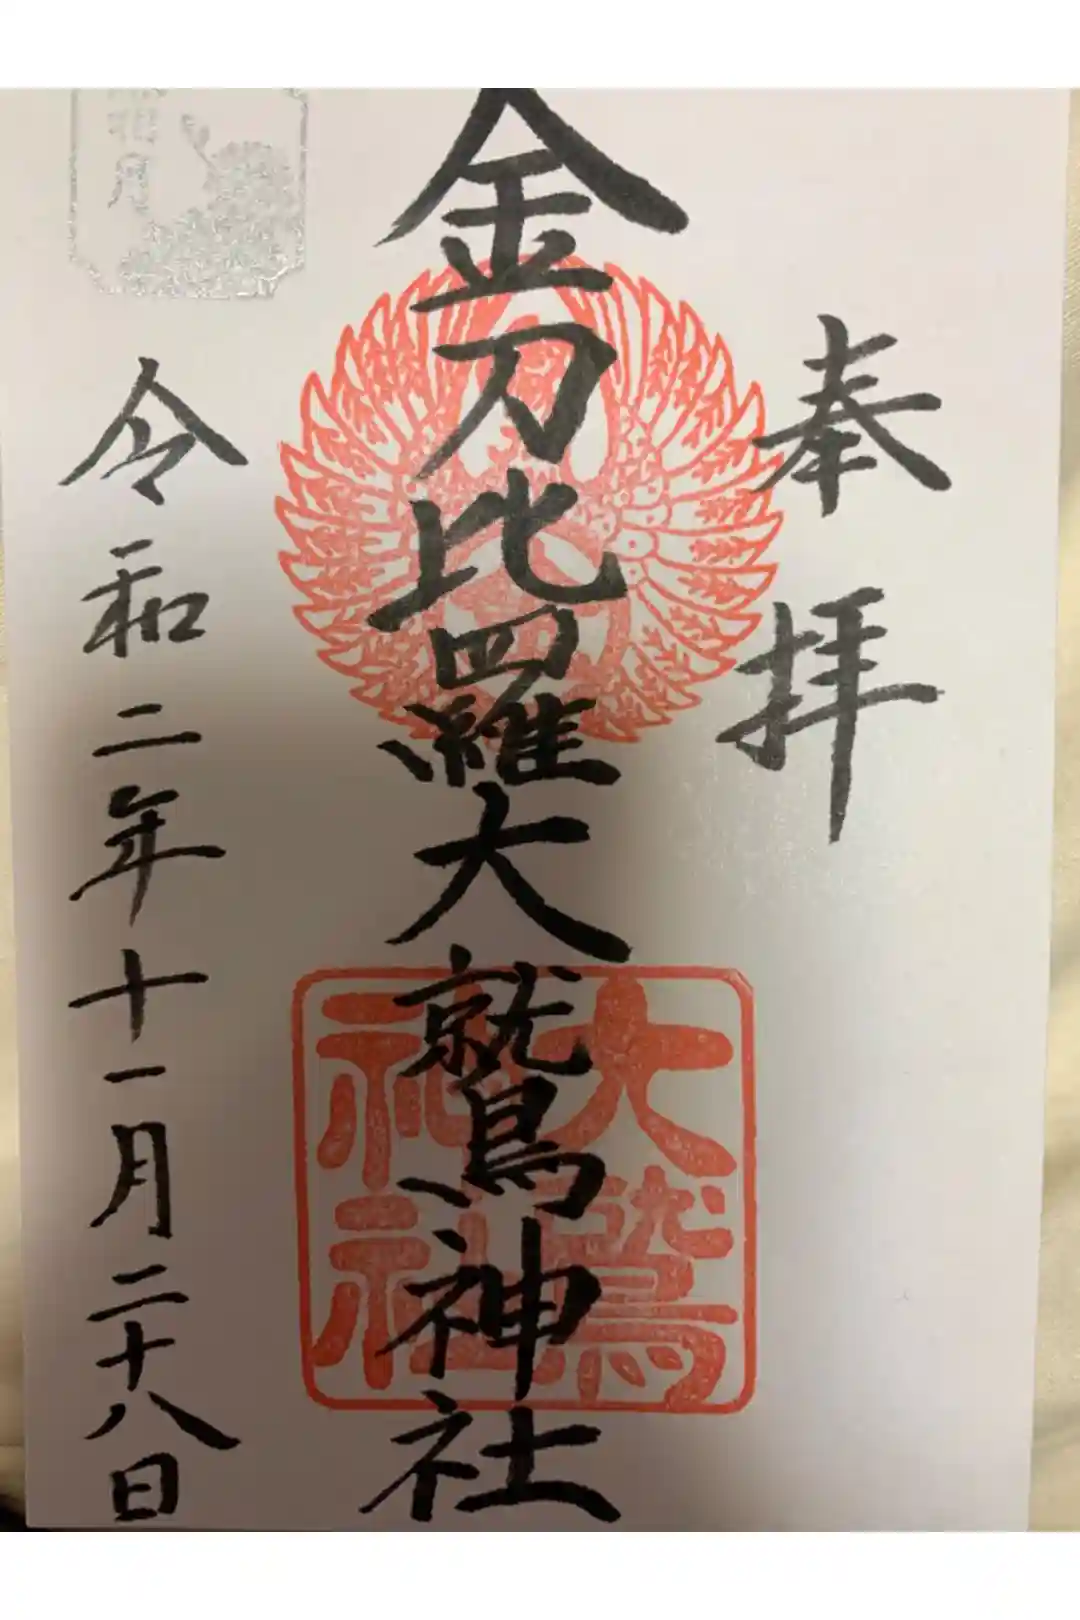 奉拝
金刀比羅大鷲神社
大鷲
神社
霜月
令和二年十一月二十八日